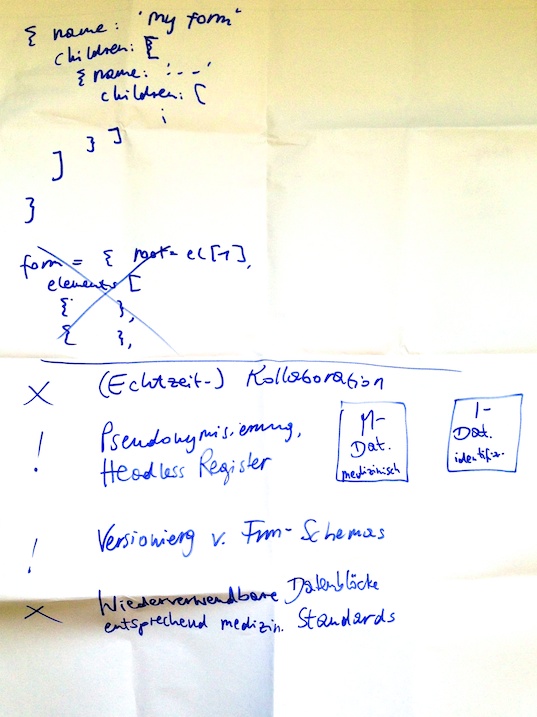 { name: 'My form'
children: [
{ name: '---'
children: [
⋮
} ]
]
}
form = { root = el[1],
elements [
{ },
{ },
X (Echtzeit-) Kollaboration
! Pseudonymisierung,
Headless Register
M-
Dat.
medizinisch
I-
Dat.
identifiz.
! Versionierg v. Frm-Schemas
X Wiederverwendbare Datenblöcke
entsprechend medizin. Standards